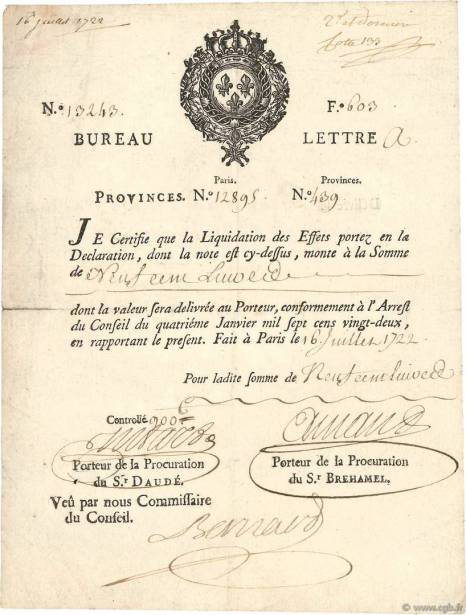 16 juillet 1722
2e et dernier
Cotte 133
N.º 13243.
F.º 603
BUREAU LETTRE A
Paris. Provinces.
PROVINCES. N.º 12895 N.º 439
JE Certifie que la Liquidation des Effets portez en la
Declaration, dont la note est cy-dessus, monte à la Somme
de Neuf cent Livres
dont la valeur sera delivrée au Porteur, conformement à l'Arrest
du Conseil du quatriéme Janvier mil sept cens vingt-deux,
en rapportant le present. Fait à Paris le 16 Juillet 1722
Pour ladite somme de Neuf cent Livres
Controllé 900
Porteur de la Procuration
du S.r DAUDÉ.
Porteur de la Procuration
du S.r BREHAMEL.
Veû par nous Commissaire
du Conseil.
© www.cgb.fr